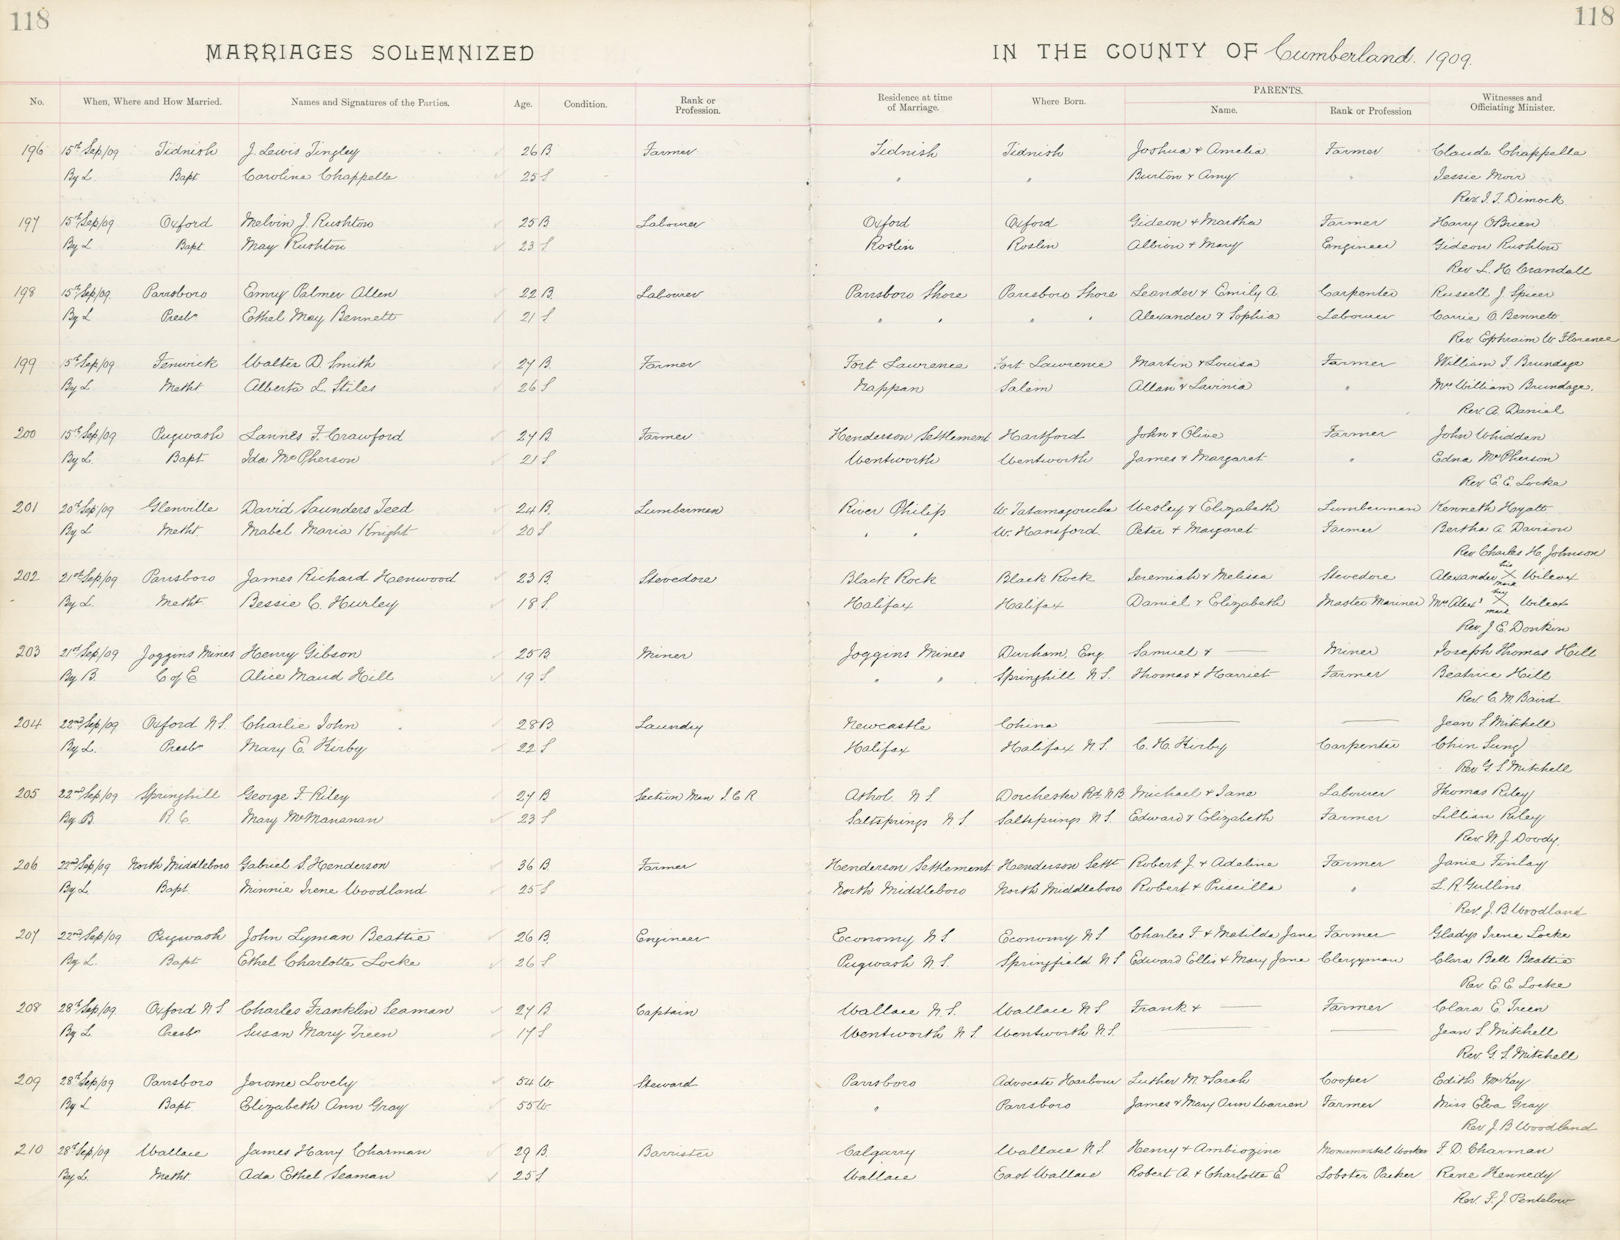 118 118
MARRIAGES SOLEMNIZED IN THE COUNTY OF Cumberland. 1909.
No. When, Where and How Married. Names and Signatures of the Parties. Age. Condition. Rank or Profession. Residence at time of Marriage. Where Born. PARENTS. Name. Rank or Profession Witnesses and Officiating Minister.
196 15th Sep/09 Tidnish J. Lewis Tingley 26 B. Farmer Tidnish Tidnish Joshua & Amelia Farmer Claude Chappelle
By L. Bapt Caroline Chappelle 25 S " " Burton & Amy " Jessie Moir
Rev. I. T. Dimock
197 15th Sep/09 Oxford Melvin J. Rushton 25 B Labourer Oxford Oxford Gideon & Martha Farmer Harry O'Brien
By L Bapt. May Rushton 23 S Roslin Roslin Albion & Mary Engineer Gideon Rushton
Rev L. H. Crandall
198 15th Sep/09 Parrsboro Emry Palmer Allen 22 B. Labourer Parrsboro Shore Parrsboro Shore Leander & Emily A. Carpenter Russell J. Spicer
By L Presbn Ethel May Bennett 21 S " " " " Alexander & Sophia Labourer Carrie O. Bennett
Rev. Ephraim W. Florence
199 15th Sep/09 Fenwick Walter D. Smith 27 B. Farmer Fort Lawrence Fort Lawrence Martin & Louisa Farmer William T. Brundage
By L. Metht. Alberta L. Stiles 26 S Nappan Salem Allan & Lavinia " Mrs William Brundage.
Rev. A. Daniel
200 15th Sep/09 Pugwash Lannes F. Crawford 27 B. Farmer Henderson Settlement Hartford John & Olive Farmer John Whidden
By L. Bapt Ida McPherson 21 S Wentworth Wentworth James & Margaret " Edna McPherson
Rev. E. E. Locke
201 20th Sep/09 Glenville David Saunders Teed 24 B. Lumberman River Philip W. Tatamagouche Wesley & Elizabeth Lumberman Kenneth Hyatt
By L Metht. Mabel Maria Knight 20 S " " W. Hansford Peter & Margaret Farmer Bertha A. Davison
Rev Charles H. Johnson
202 21st Sep/09 Parrsboro James Richard Henwood 23 B. Stevedore Black Rock Black Rock Jeremiah & Melissa Stevedore Alexander his X mark Wilcox
By L. Metht Bessie C. Hurley 18 S. Halifax Halifax Daniel & Elizabeth Master Mariner Mrs Alexr her X mark Wilcox
Rev. J. E. Donkin
203 21st Sep/09 Joggins Mines Henry Gibson 25 B Miner Joggins Mines Durham, Eng Samuel & — Miner Joseph Thomas Hill
By B. C of E Alice Maud Hill 19 S " " Springhill N.S. Thomas & Harriet Farmer Beatrice Hill
Rev. C. M. Baird
204 22nd Sep/09 Oxford N.S. Charlie John 28 B Laundry Newcastle China — — Jean S. Mitchell
By L. Presbn Mary E. Kirby 22 S Halifax Halifax N.S. C. H. Kirby Carpenter Chin Sung
Rev. G. S. Mitchell
205 22nd Sep/09 Springhill George F. Riley 27 B Section Man I.C.R Athol. N.S. Dorchester Rd. N.B. Michael & Jane Labourer Thomas Riley
By B. R. C. Mary McManaman 23 S Saltsprings N.S. Saltsprings N.S. Edward & Elizabeth Farmer Lillian Riley
Rev. W. J. Doody.
206 22nd Sep/09 North Middleboro Gabriel S. Henderson 36 B. Farmer Henderson Settlement Henderson Settt Robert J. & Adeline Farmer Janie Finlay
By L Bapt. Minnie Irene Woodland 25 S North Middleboro North Middleboro Robert & Priscilla " L. R. Gullins
Rev. J. B Woodland
207 22nd Sep/09 Pugwash John Lyman Beattie 26 B. Engineer Economy N.S Economy N.S Charles F. & Matilda Jane Farmer Gladys Irene Locke
By L. Bapt Ethel Charlotte Locke 26 S Pugwash N.S. Springfield N S Edward Ellis & Mary Jane Clergyman Clara Bell Beattie
Rev E. E Locke
208 28th Sep/09 Oxford N.S. Charles Franklin Seaman 27 B Captain Wallace N.S. Wallace N.S Frank & — Farmer Clara E. Treen
By L. Presbn Susan Mary Treen 17 S Wentworth N.S Wentworth N.S. — — Jean S. Mitchell
Rev. G. S. Mitchell
209 28th Sep/09 Parrsboro Jerome Lovely 54 W Steward Parrsboro Advocate Harbour Luther M. & Sarah Cooper Edith McKay
By L Bapt Elizabeth Ann Gray 55 W. " Parrsboro James & Mary Ann Warren Farmer Miss Elva Gray
Rev J. B Woodland
210 28th Sep/09 Wallace James Harry Charman 29 B. Barrister Calgarry Wallace N.S. Henry & Ambrozine Monumental Worker F. D. Charman
By L. Metht. Ada Ethel Seaman 25 S. Wallace East Wallace Robert A. & Charlotte E Lobster Packer Rene Kennedy
Rev. F. J. Pentelow